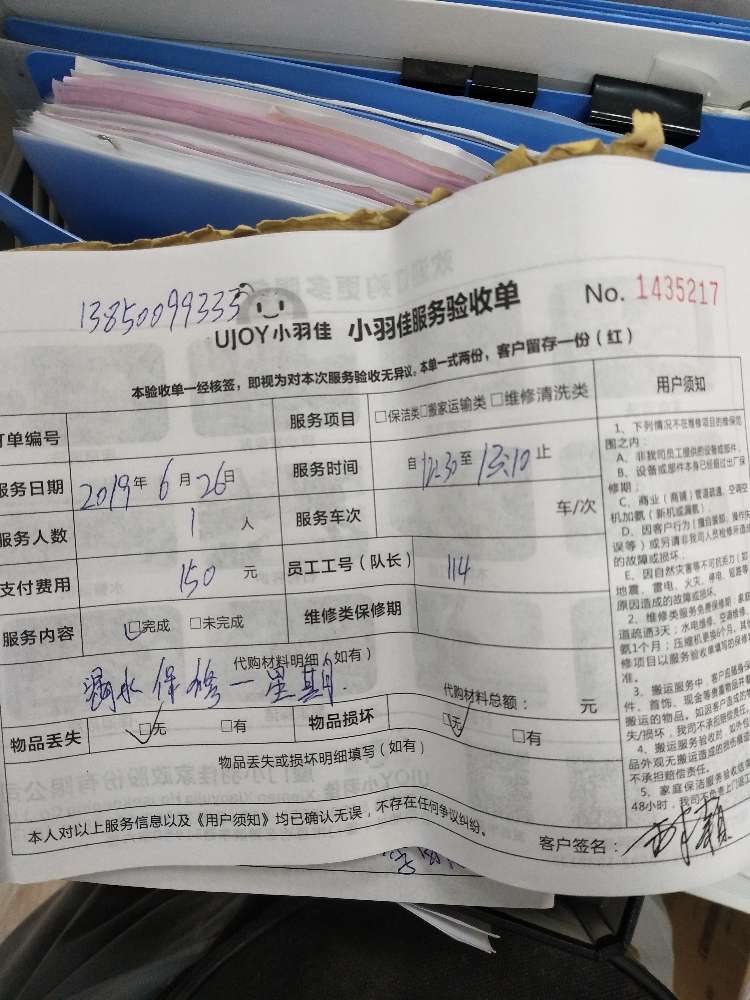 13850099333
UJOY小羽佳 小羽佳服务验收单 No. 1435217
本验收单一经核签，即视为对本次服务验收无异议。本单一式两份，客户留存一份（红）
订单编号 服务项目 □保洁类□搬家运输类 □维修清洗类
服务日期 2019年6月26日 服务时间 自12:30至13:10止
服务人数 1人 服务车次 车/次
支付费用 150元 员工工号（队长） 114
服务内容 □完成 □未完成 维修类保修期
代购材料明细（如有）
漏水保修一星期.
代购材料总额： 元
物品丢失 □无 □有 物品损坏 □无 □有
物品丢失或损坏明细填写（如有）
本人对以上服务信息以及《用户须知》均已确认无误，不存在任何争议纠纷。
客户签名：
用户须知
1、下列情况不在维修项目的维保范
围之内：
A、非我司员工提供的设备或部件。
B、设备或部件本身已经超过出厂保
修期；
C、商业（商铺）管道疏通、空调空
机加氨（新机或漏氨）；
D、因客户行为（擅自装卸、操作失
误等）或另请非我司人员检修所造成
的故障或损坏；
E、因自然灾害等不可抗力（如
地震、雷电、火灾、停电、短路等
原因造成的故障或损坏。
2、维修类服务免费保修期：家庭
道疏通3天；水电维修、空调维修
氨1个月；压缩机更换6个月，其他
修项目以服务验收单填写的保修
准。
3、搬运服务中，客户应随身
件、首饰、现金等贵重物品并
搬运的物品。如因客户造成
失/损坏，我司不承担赔偿责任。
4、搬运服务验收时，如外
品外观无搬运造成的损伤痕迹
不承担赔偿责任。
5、家庭保洁服务验收结束
48小时，我司不负责上门返工